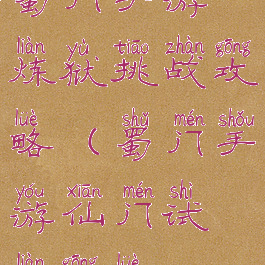 蜀门手游
liàn yù tiāo zhàn gōng
炼狱挑战攻
luè shǔ mén shǒu
略(蜀门手
yóu xiān mén shì
游仙门试
liàn gōng luè